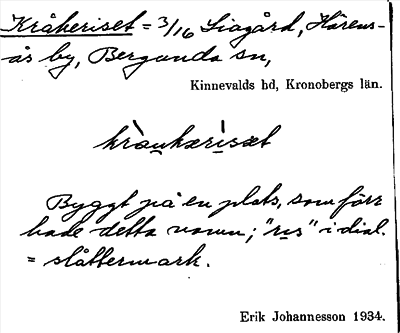 Kråkeriset = 3/16 Siagård, Härens-
ås by, Bergunda sn,
Kinnevalds hd, Kronobergs län.
kråukærisæt
Byggt på en plats, som förr
hade detta namn; "ris" i dial.
= slåttermark.
Erik Johannesson 1934.